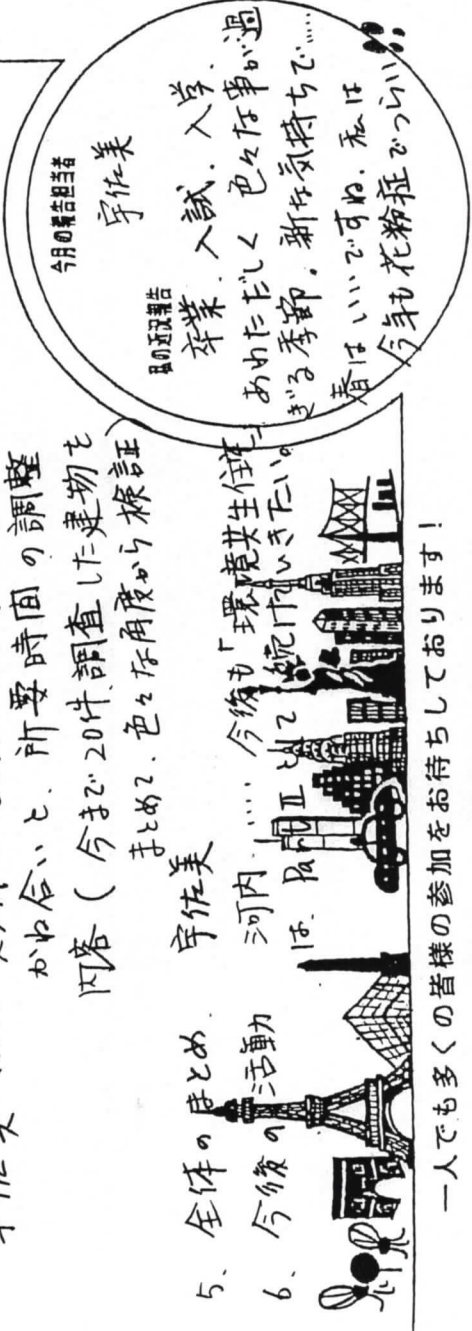 かね合いと、所要時間の調整
内容(今まで20件調査した建物を
まとめて、色々な角度から検証
5、全体のまとめ 宇佐美
6、今後の活動 河内 ‥‥ 今後も「環境共生住宅」
は、Part II として続けていきたい。
今月の報告担当者
宇佐美
私の近況報告
卒業、入試、入学、
あわただしく 色々な事が過
ぎる季節。新な気持ちで‥‥
春はいいですね。私は
今年も花粉症でつらい
一人でも多くの皆様の参加をお待ちしております!